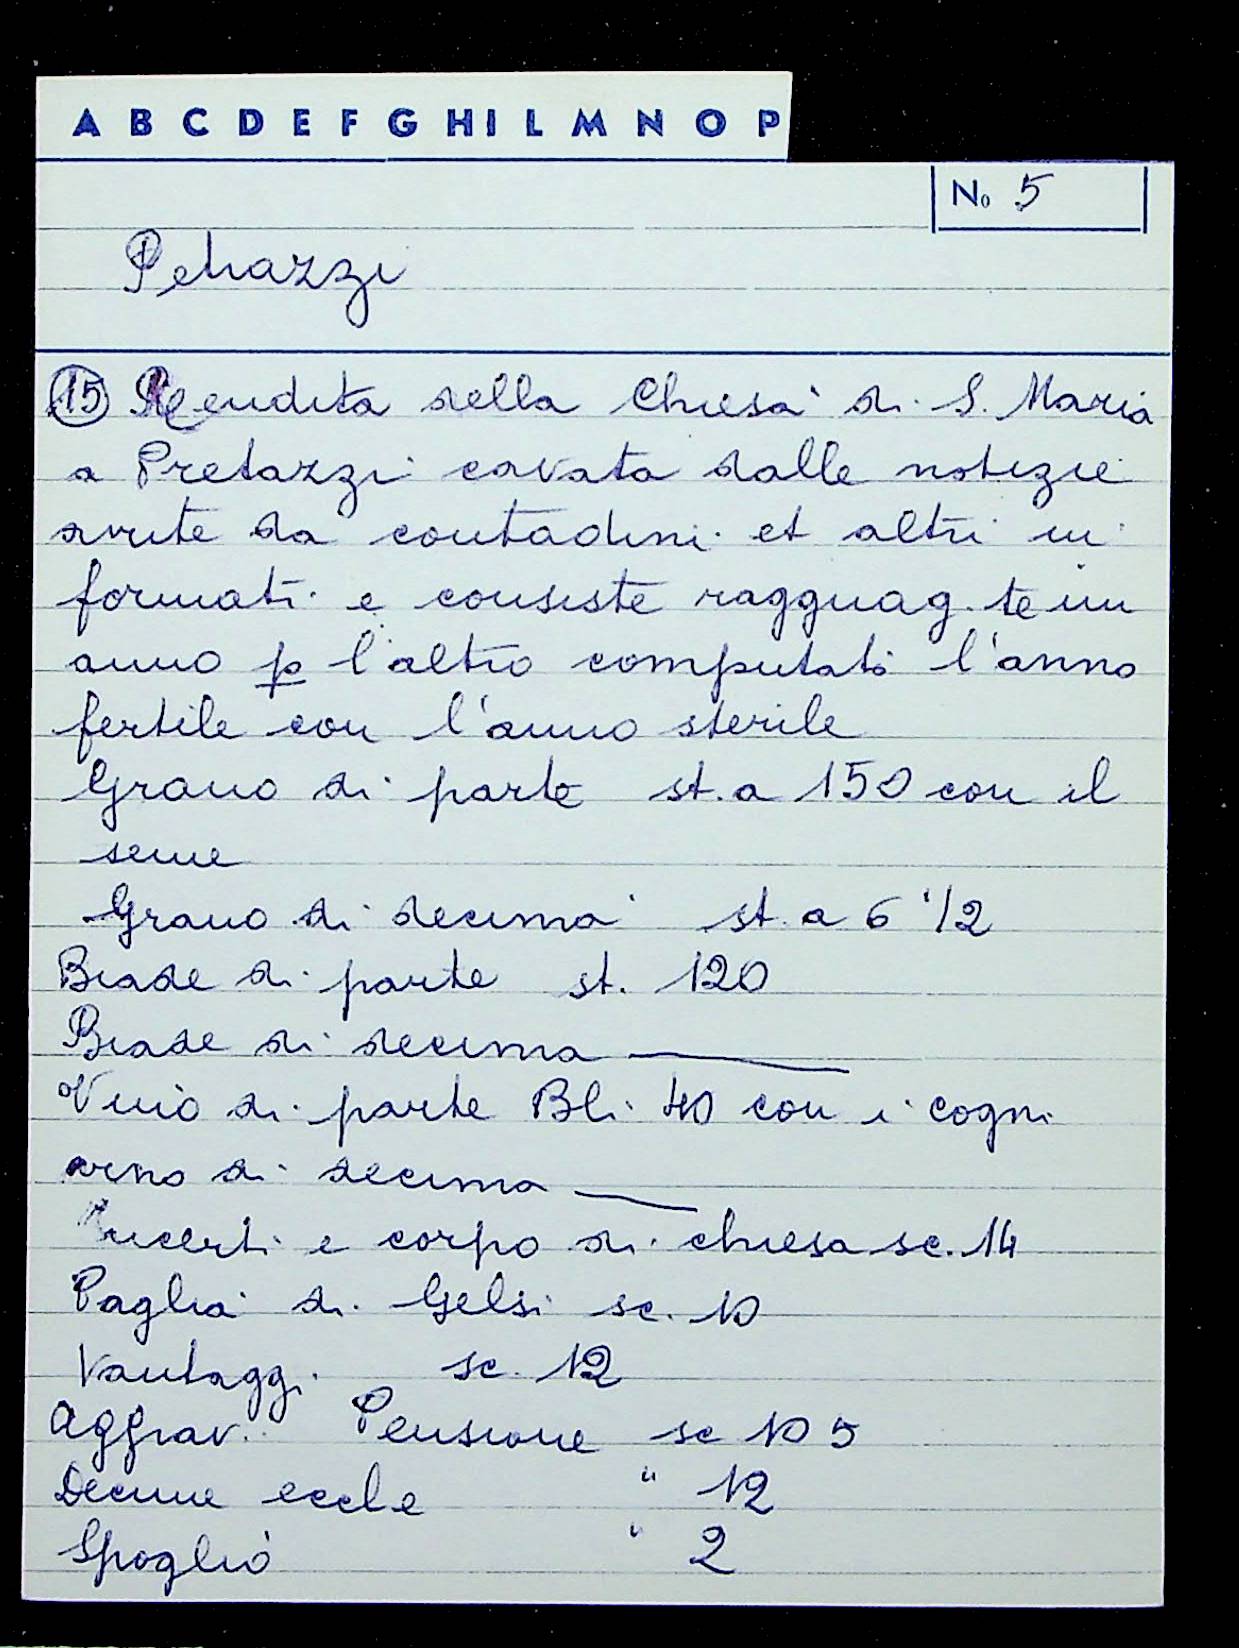 A B C D E F G H I L M N O P
No 5
Petrazzi
15 Rendita della Chiesa di S. Maria
a Pretazzi cavata dalle notizie
avute da contadini et altri in
formati e consiste ragguag.te un
anno p l'altro computato l'anno
fertile con l'anno sterile
Grano di parte st.a 150 con il
seme
Grano di decima st.a 6 1/2
Biade di parte st. 120
Biade di decima
Vino di parte Bli 40 con i cogni
vino di decima
Incerti e corpo di chiesa sc. 14
Paglia di Gelsi sc. 10
Vantaggi sc. 12
Aggrav. Pensione sc 105
Decime eccle " 12
Spoglio " 2